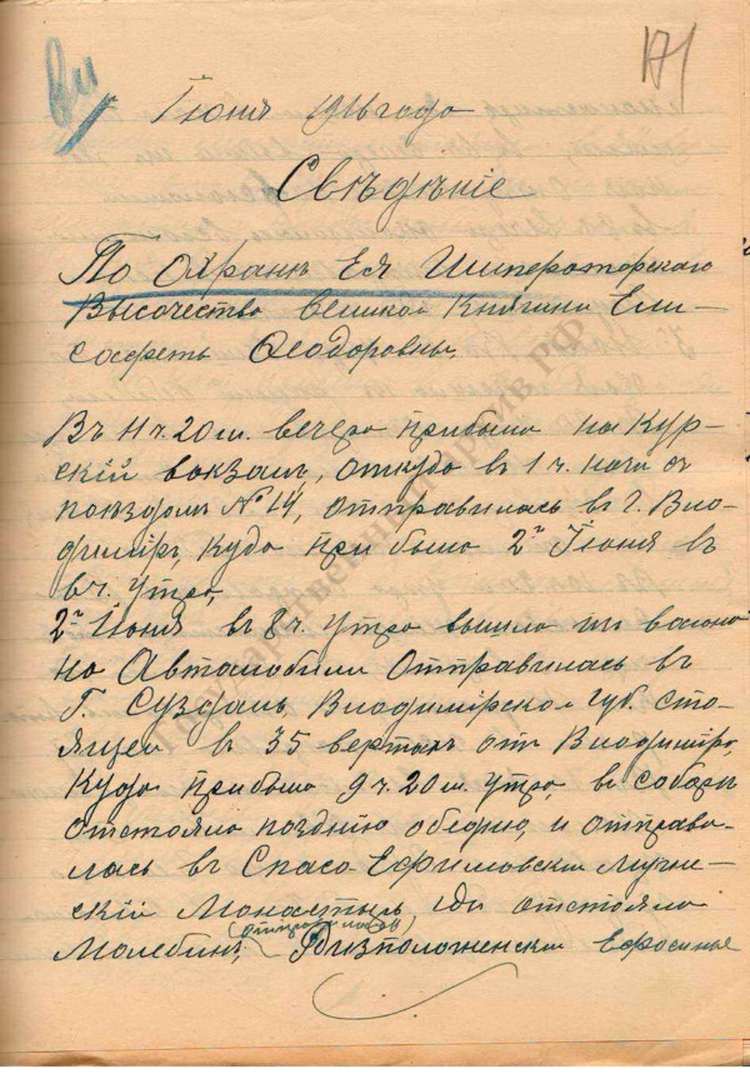 171
1 Июня 1916 года
Свѣдѣнiе
По Охранѣ Ея Императорскаго
Высочество Великой Княгини Ели-
сафеть Феодоровны.
Въ 11 ч. 20 м. вечера прибыла на Кур-
скiй вокзалъ, откуда в 1 ч. ночи съ
поѣздомъ № 14, отправилась в г. Вла-
димiръ, куда прибыла 2го Iюня въ
6 ч. утра,
2го Iюня въ 8 ч. утра вышла из вагона
на Автомобили отправилась въ
г. Суздаль, Владимiрской губ. сто-
ящей в 35 верстахъ отъ Владимiра,
куда прибыла 9 ч. 20 м. утра, в соборѣ
отстояла позднiю обедню, и отправи-
лась въ Спасо-Ефимовскiй Мужс-
скiй Монастырь, где отстояла
(отправилась в)
Молебинъ, Ризположенскiй Ефросинье
Государственный архив РФ